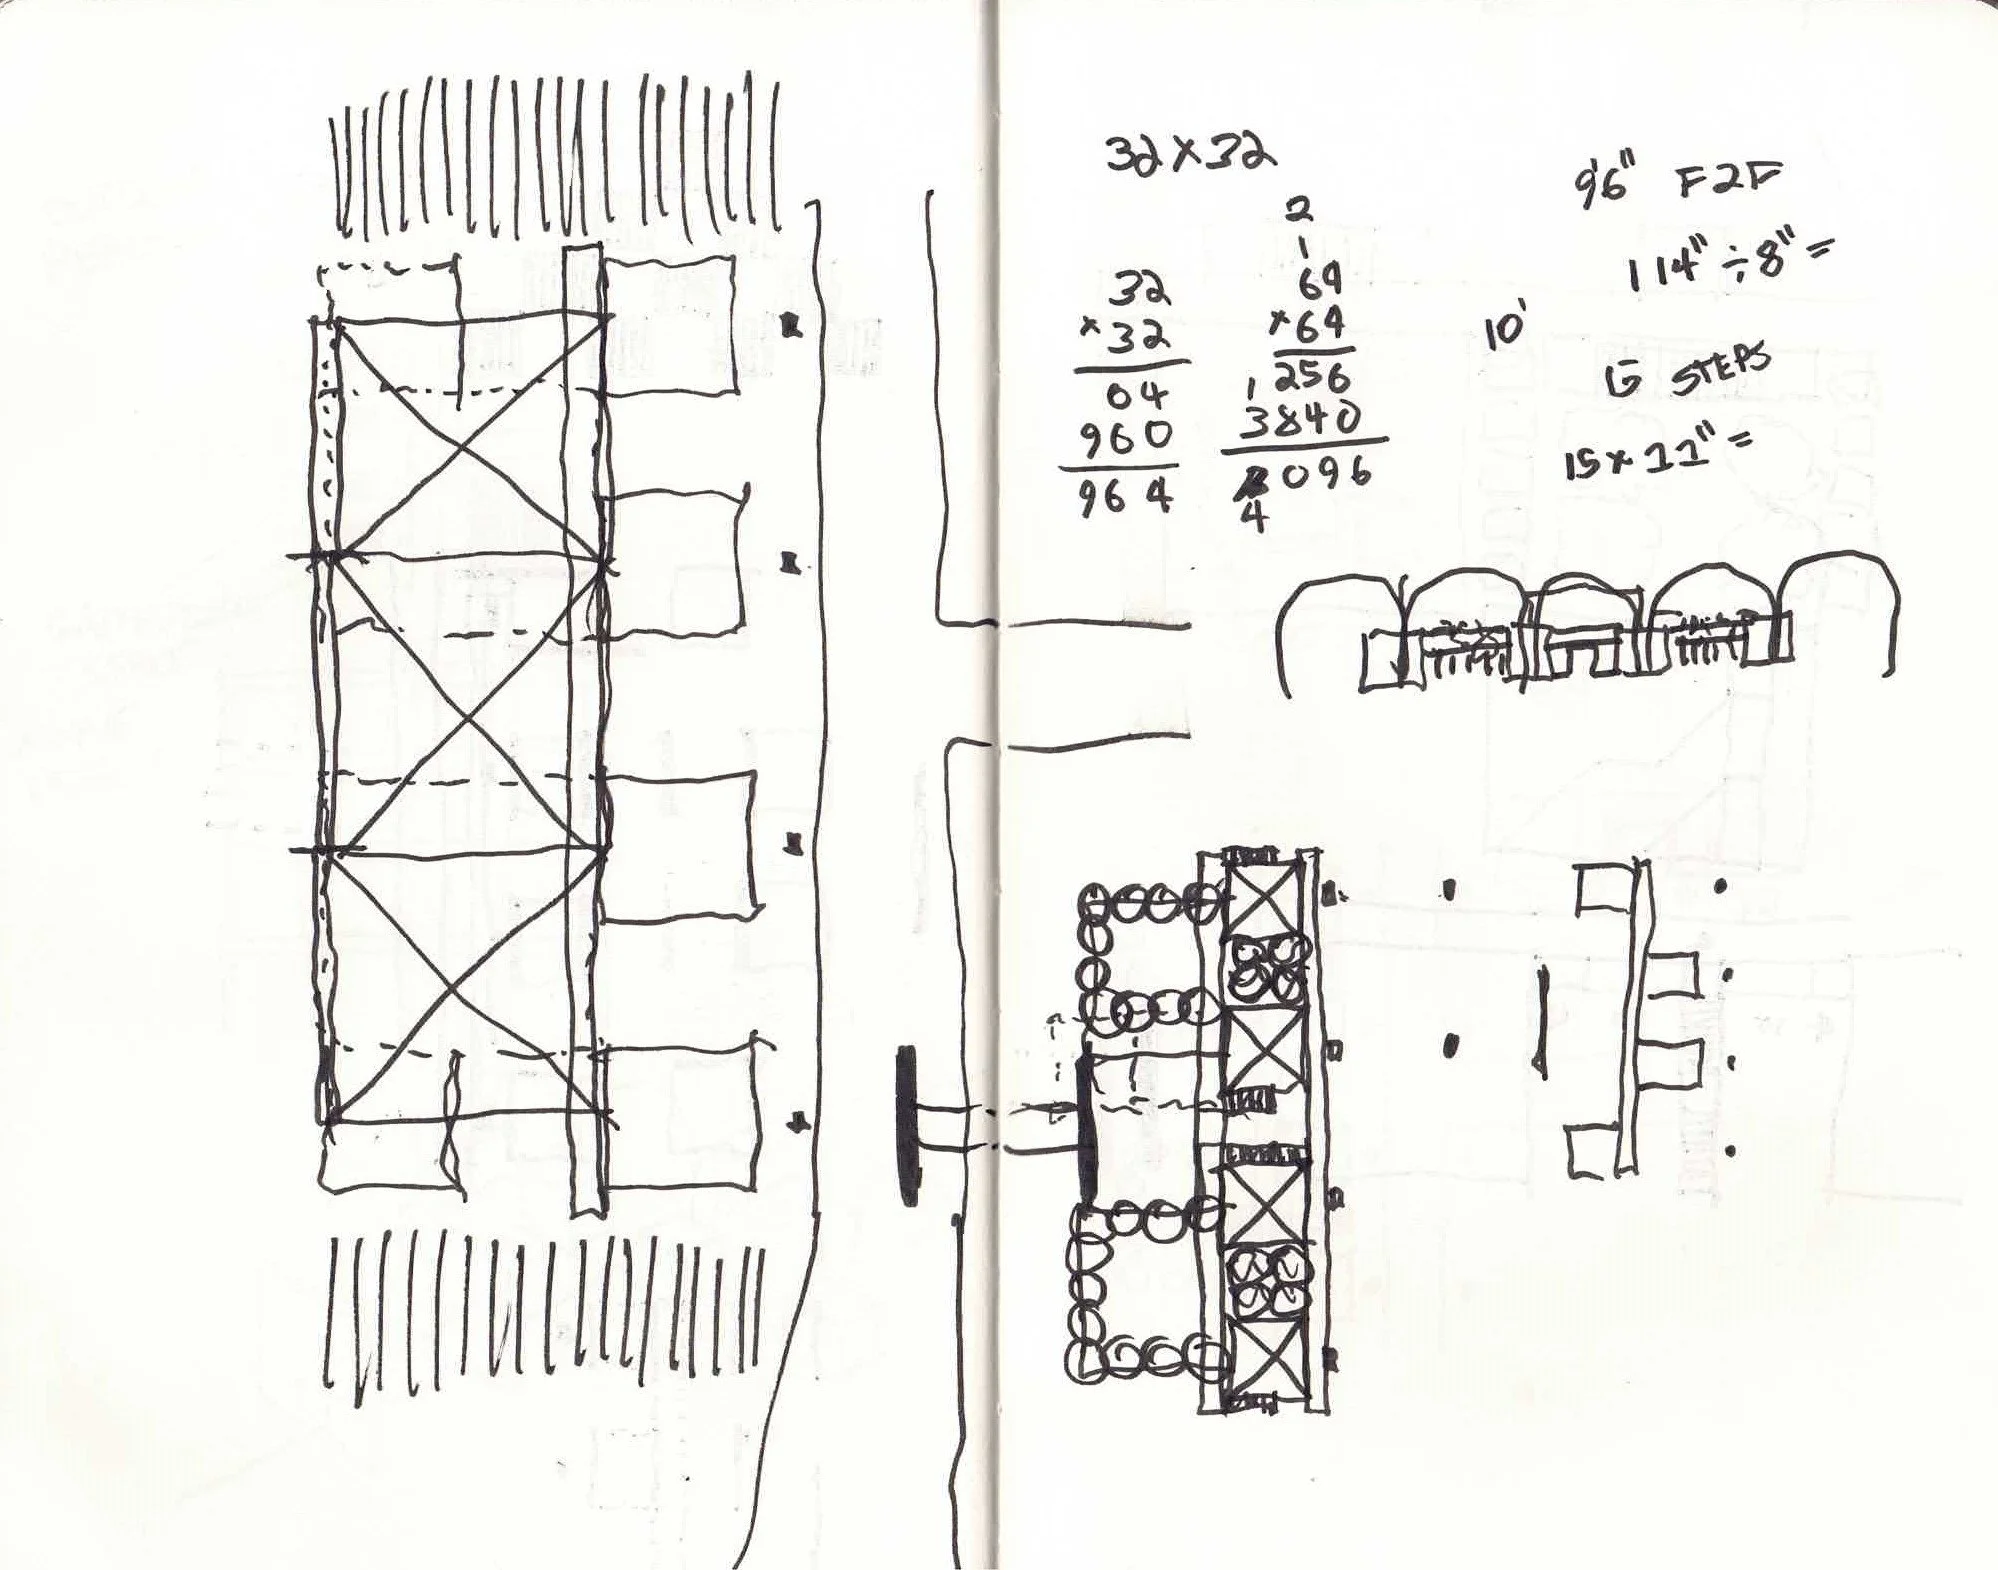 32×32
32
×32
04
960
964
2
1
64
×64
1
256
3840
096
4
9'6" F2F
114" ÷ 8" =
10'
15 STEPS
15 × 11" =